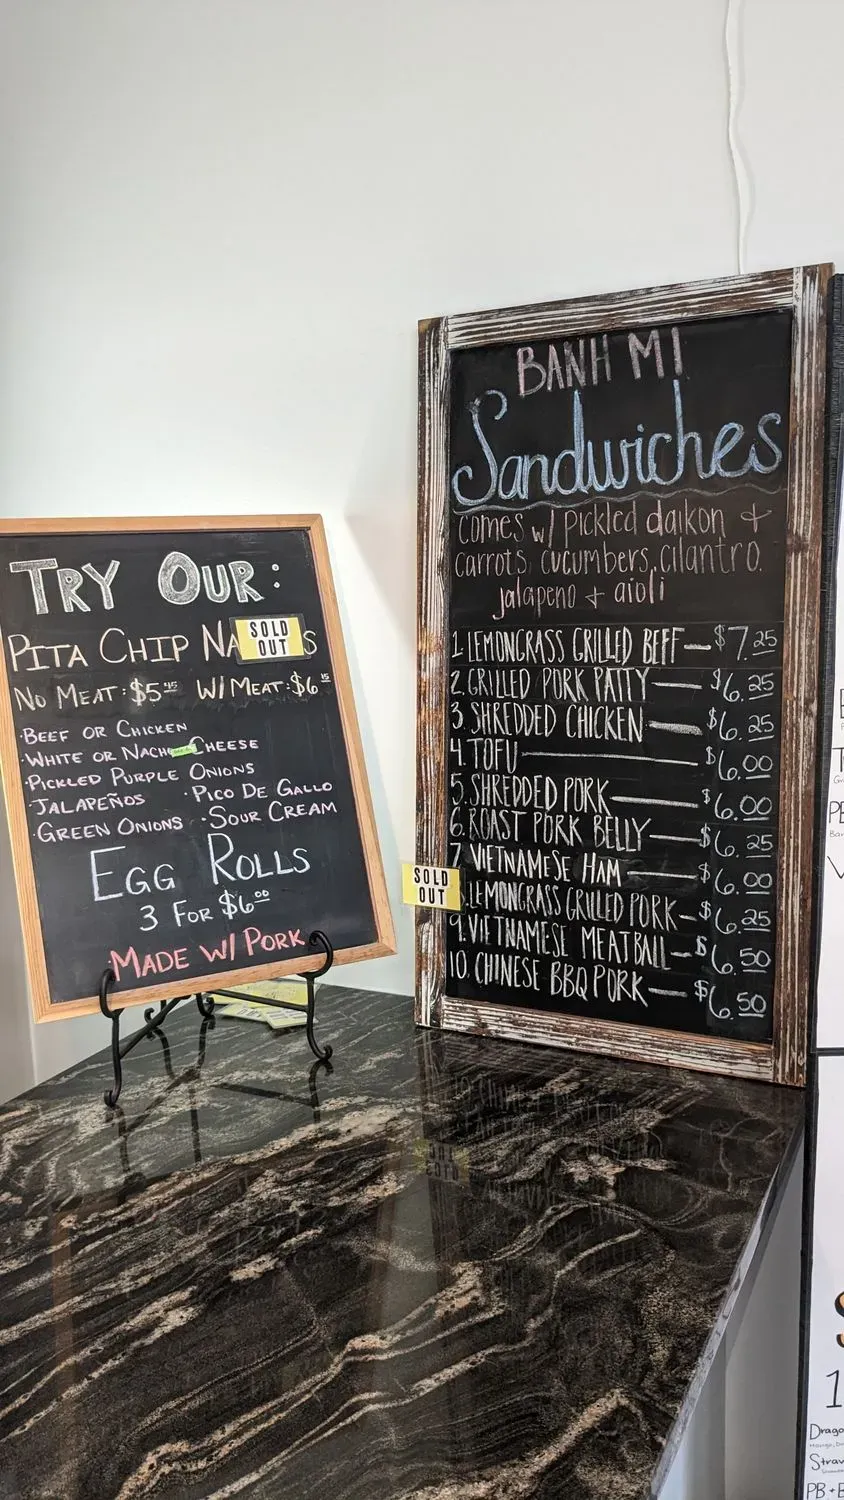 TRY OUR:
PITA CHIP NA S
SOLD OUT
NO MEAT: $5.45 W/ MEAT: $6.15
·BEEF OR CHICKEN
·WHITE OR NACHO CHEESE
·PICKLED PURPLE ONIONS
·JALAPEÑOS ·PICO DE GALLO
·GREEN ONIONS ·SOUR CREAM
EGG ROLLS
3 FOR $6.00
·MADE W/ PORK
BANH MI
Sandwiches
comes w/ pickled daikon +
carrots, cucumbers, cilantro,
jalapeno + aioli
1. LEMONGRASS GRILLED BEEF — $7.25
2. GRILLED PORK PATTY — $6.25
3. SHREDDED CHICKEN — $6.25
4. TOFU — $6.00
5. SHREDDED PORK — $6.00
6. ROAST PORK BELLY — $6.25
7. VIETNAMESE HAM — $6.00
SOLD OUT
LEMONGRASS GRILLED PORK — $6.25
9. VIETNAMESE MEATBALL — $6.50
10. CHINESE BBQ PORK — $6.50
PB +